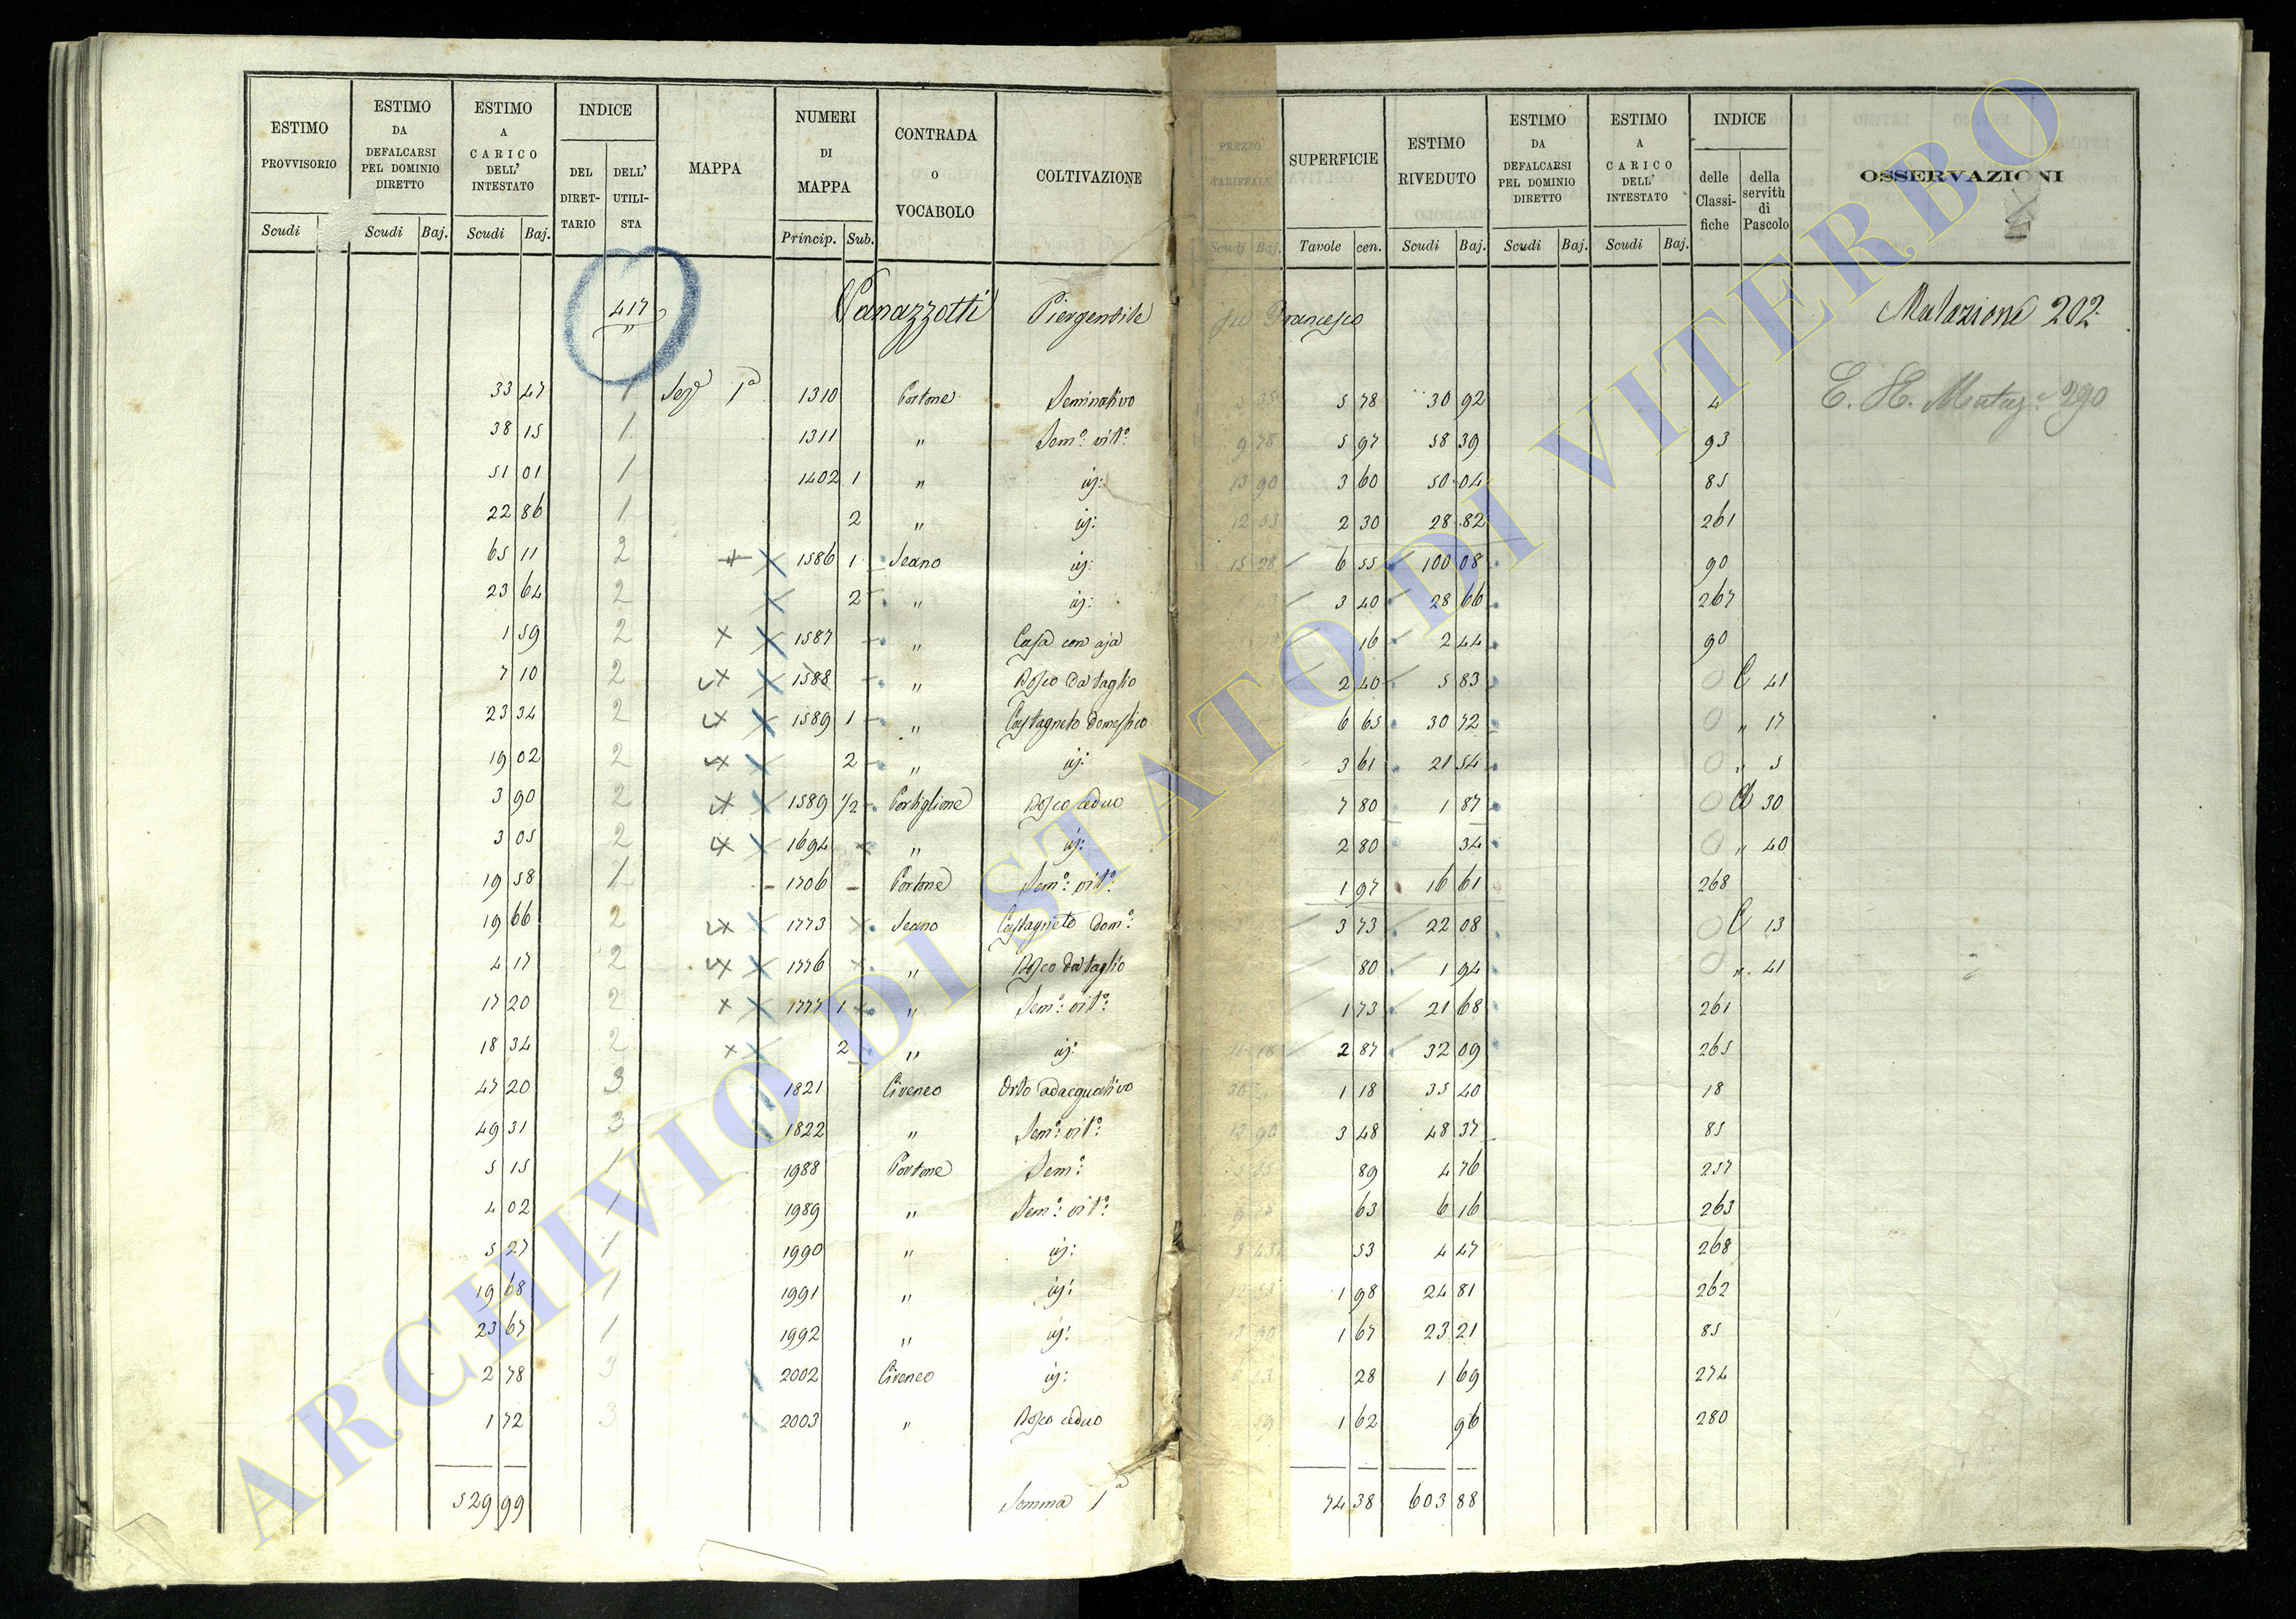 ESTIMO PROVVISORIO | ESTIMO DA DEFALCARSI PEL DOMINIO DIRETTO | ESTIMO A CARICO DELL' INTESTATO | INDICE DEL DIRET-TARIO | DELL' UTILI-STA | MAPPA | NUMERI DI MAPPA | CONTRADA O VOCABOLO | COLTIVAZIONE | PREZZO TARIFFALE | SUPERFICIE | ESTIMO RIVEDUTO | ESTIMO DA DEFALCARSI PEL DOMINIO DIRETTO | ESTIMO A CARICO DELL' INTESTATO | INDICE delle Classi-fiche | della servitù di Pascolo | OSSERVAZIONI
Scudi | Scudi Baj. | Scudi Baj. | Princip. Sub. | Scudi Baj. | Tavole cen. | Scudi Baj. | Scudi Baj. | Scudi Baj.
417 Panazzotti Piergentile fu Francesco Mutazione 202
33 47 1 Sezᵉ 1ª 1310 Portone Seminativo 5 78 30 92 4 E. H. Mutazᵉ 290
38 15 1 1311 " Semº: vitº: 9 78 5 97 58 39 93
51 01 1 1402 1 " id: 13 90 3 60 50 04 85
22 86 1 2 " id: 12 53 2 30 28 82 261
65 11 2 1586 1 Seano id: 15 28 6 55 100 08 90
23 64 2 2 " id: 3 40 28 66 267
1 59 2 1587 " Casa con aja 16 2 44 90
7 10 2 1588 " Bosco da taglio 2 40 5 83 0 C 41
23 34 2 1589 1 " Castagneto domestico 6 65 30 72 0 " 17
19 02 2 2 " id: 3 61 21 54 0 " 5
3 90 2 1589 1/2 Portiglione Bosco ceduo 7 80 1 87 0 30
3 05 2 1694 " id: 2 80 34 0 " 40
19 58 1 1706 Portone Semº: vitº: 1 97 16 61 268
19 66 2 1773 Seano Castagneto domº: 3 73 22 08 0 C 13
4 17 2 1776 " Bosco da taglio 80 1 94 0 " 41
17 20 2 1777 1 " Semº: vitº: 1 73 21 68 261
18 34 2 2 " id: 11 18 2 87 32 09 265
47 20 3 1821 Cireneo Orto adacquativo 30 1 18 35 40 18
49 31 3 1822 " Semº: vitº: 13 90 3 48 48 37 85
5 15 1 1988 Portone Semº: 5 35 89 4 76 257
4 02 1 1989 " Semº: vitº: 63 6 16 263
5 27 1 1990 " id: 8 43 53 4 47 268
19 68 1 1991 " id: 12 53 1 98 24 81 262
23 67 1 1992 " id: 13 90 1 67 23 21 85
2 78 3 2002 Cireneo id: 6 03 28 1 69 274
1 72 3 2003 " Bosco ceduo 1 62 96 280
529 99 Somma 1ª 74 38 603 88
ARCHIVIO DI STATO DI VITERBO